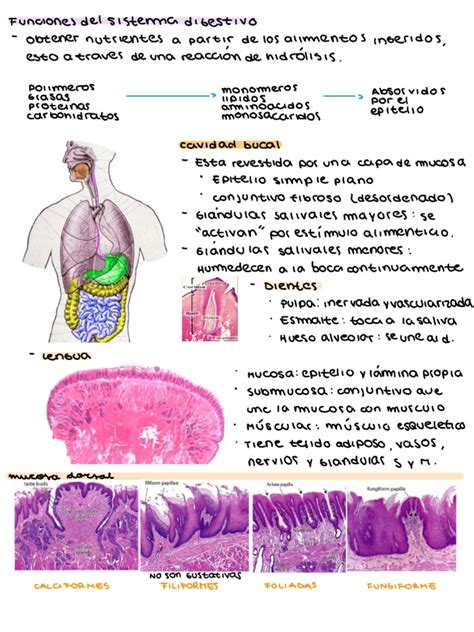 Funciones del sistema digestivo
- obtener nutrientes a partir de los alimentos ingeridos,
esto a traves de una reacción de hidrólisis.
polimeros
grasas
proteinas
carbohidratos
monomeros
lipidos
aminoácidos
monosacaridos
Absorvidos
por el
epitelio
cavidad bucal
- Esta revestida por una capa de mucosa
• Epitelio simmple plano
• conjuntivo fibroso (desordenado)
- Glándulas salivales mayores: se
"activan" por estímulo alimenticio.
- Glándulas salivales menores:
Humedecen a la boca continuamente
- Dientes
• Pulpa: inervada y vascularizada
• Esmalte: tocca la saliva
• Hueso alveolar: se une al d.
- Lengua
• Mucosa: epitelio y lámina propia
• Submucosa: conjuntivo que
une la mucosa con musculo
• Múscular: músculo esqueletico
• Tiene tejido adiposo, vasos,
nervios y glandulas S y M.
mucosa dorsal
taste buds
filiform papillae
foliate papilla
fungiform papilla
CALCIFORMES
NO SON GUSTATIVAS
FILIFORMES
FOLIADAS
FUNGIFORME